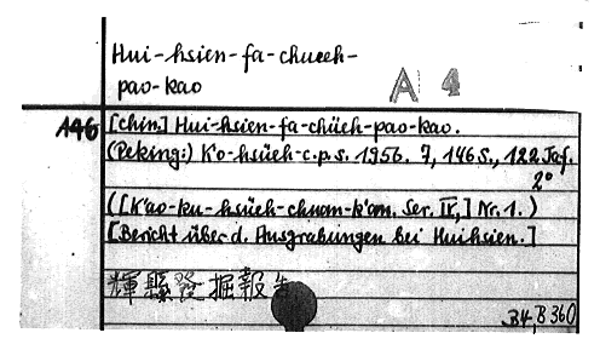 Hui-hsien-fa-chueeh-
pao-kao
A 4
A46 [chin.] Hui-hsien-fa-chüeh-pao-kao.
(Peking:) K'o-hsüeh-c.p.s. 1956. 7, 146 S., 122 Taf.
2°
([K'ao-ku-hsüeh-chuan-k'an. Ser. II,] Nr. 1.)
[Bericht über d. Ausgrabungen bei Huihsien.]
輝縣發掘報告
34, B 360